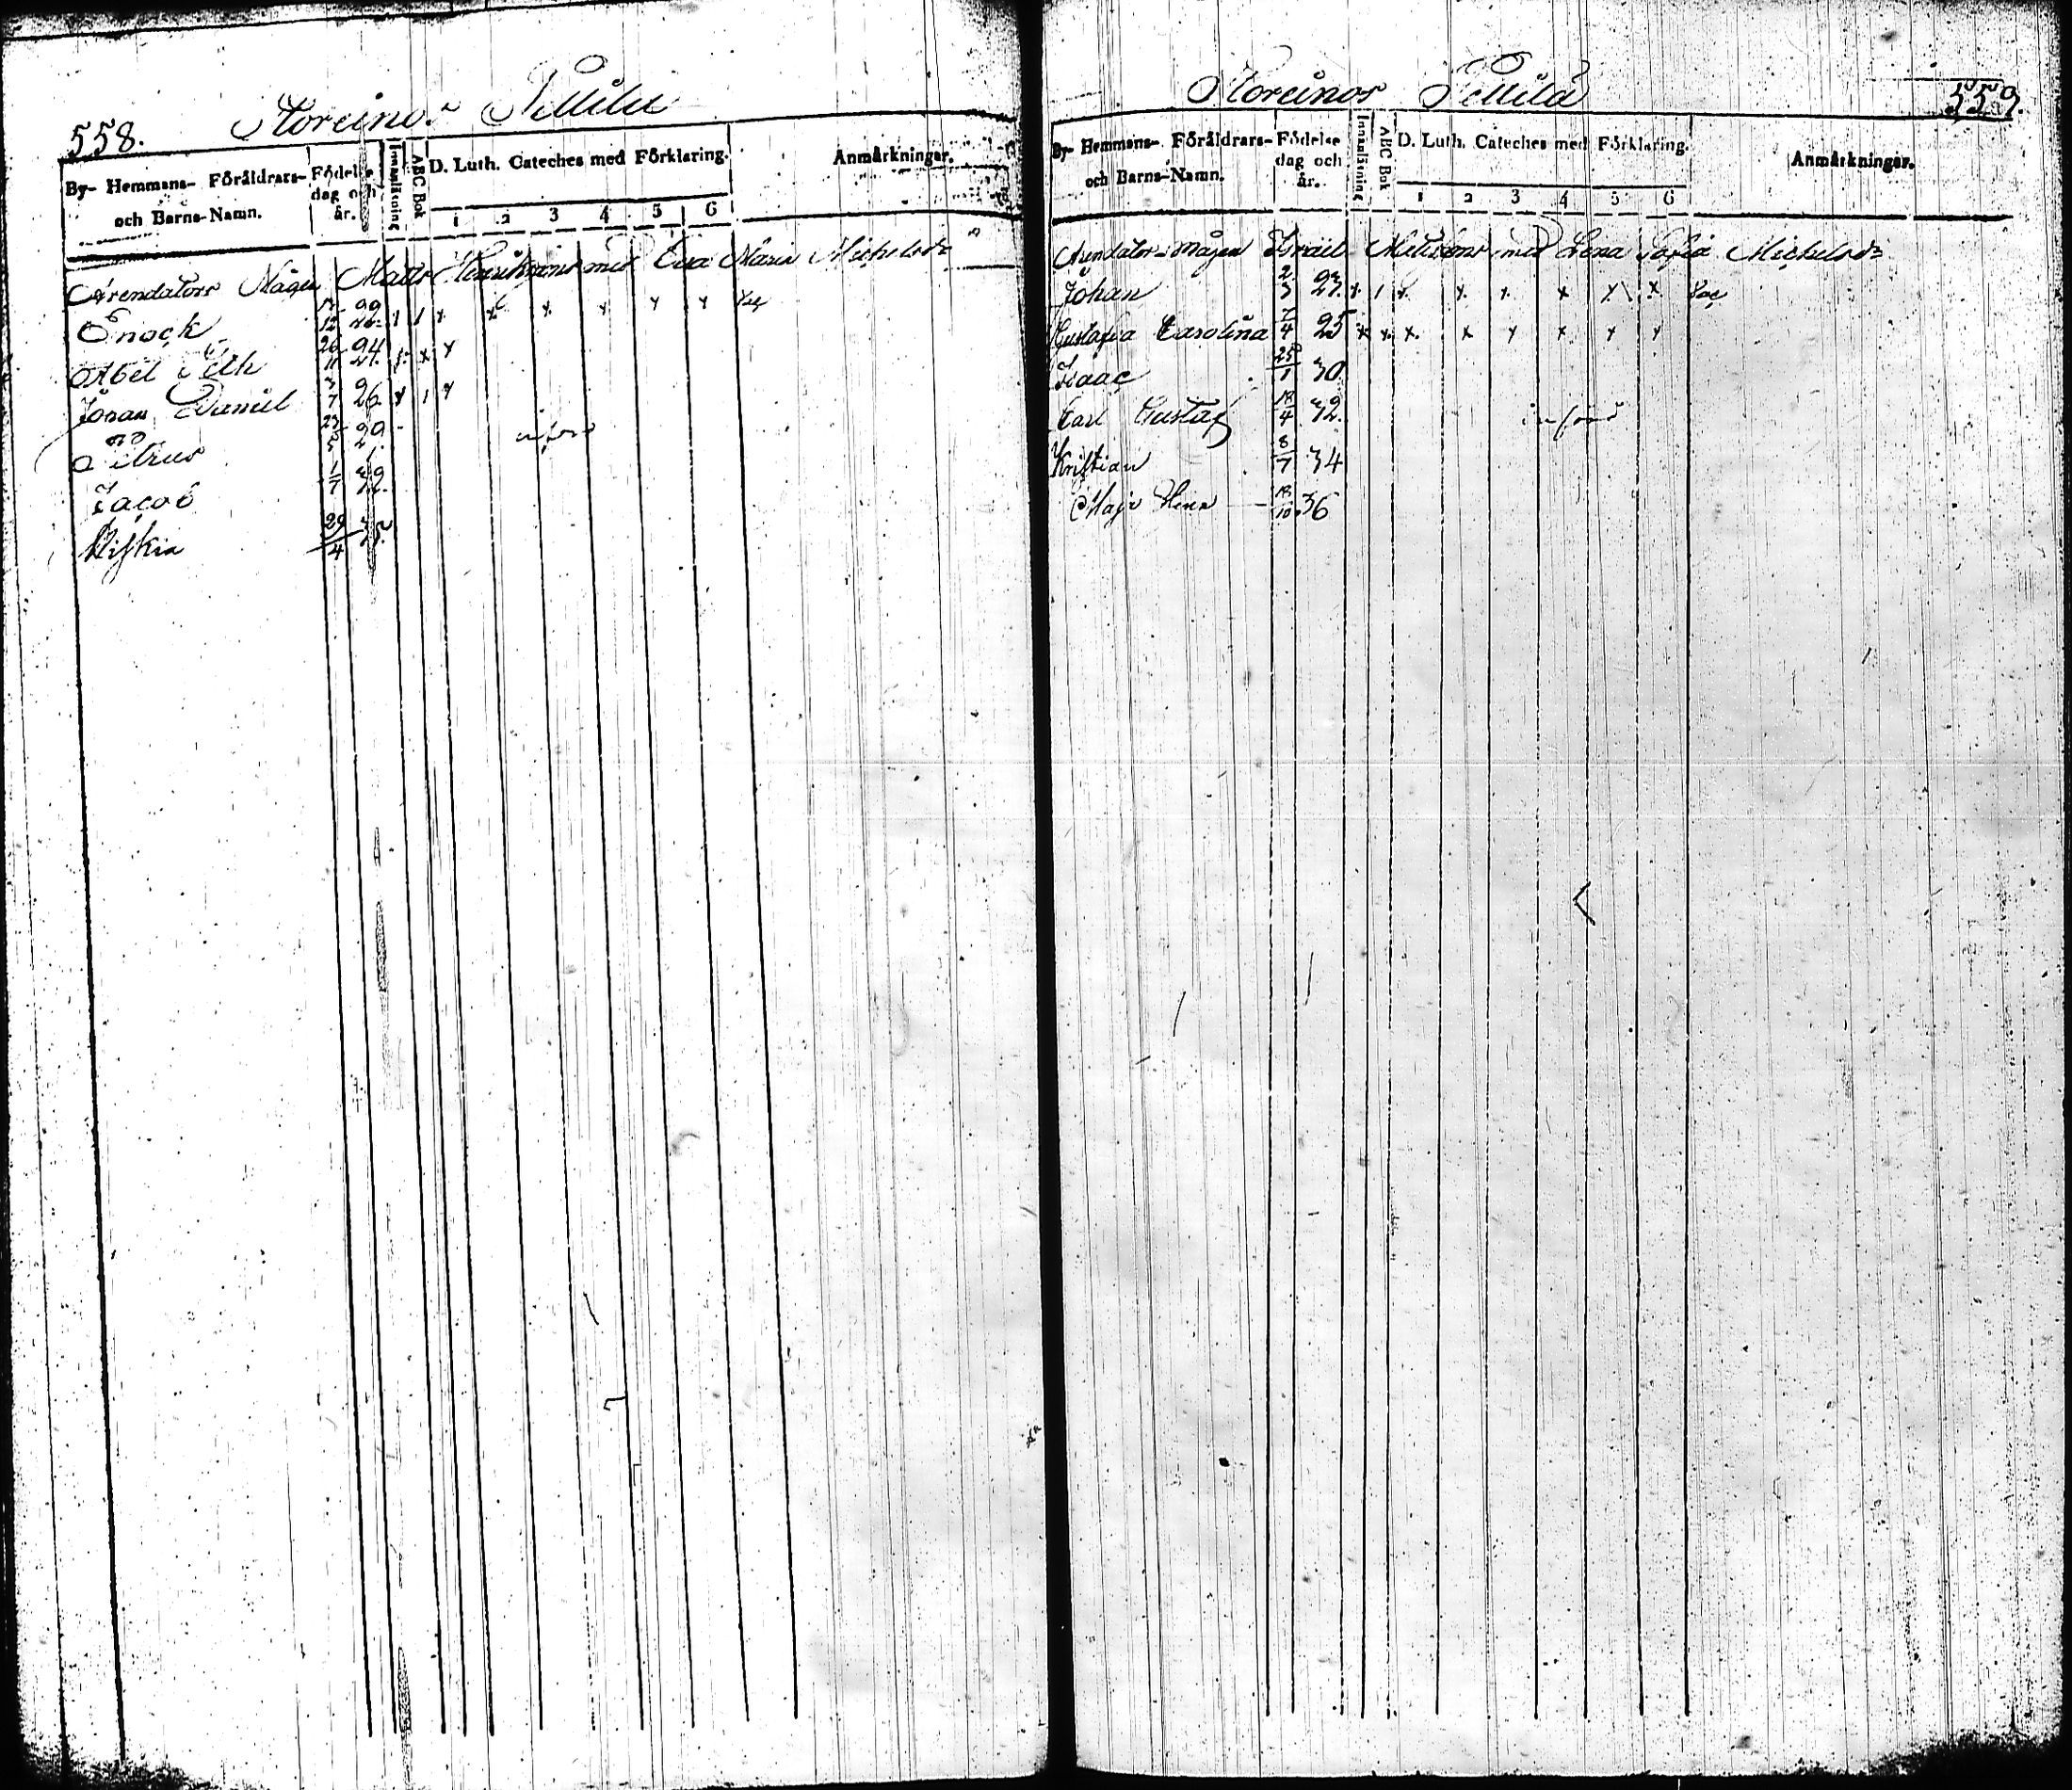 558.
Storeinos Pellilä
By- Hemmans- Föräldrars- och Barns-Namn. Födelse dag och år. Innanläsning ABC Bok D. Luth. Cateches med Förklaring. Anmärkningar.
1 2 3 4 5 6
Arendators Mågen Matts Henrikssons med Eva Maria Michelsdr
Enock 12
Abel Seth 26/11 24. x x
Johan Daniel 3/7 26 x 1 x
Petrus 23/5 29
införd
Jacob 1/7 32.
Hiskia 29/4 35.
Storeinos Pellilä
559.
By- Hemmans- Föräldrars- och Barns-Namn. Födelse dag och år. Innanläsning ABC Bok D. Luth. Cateches med Förklaring. Anmärkningar.
1 2 3 4 5 6
Arendators Mågen Israel Mattssons med Lena Sofia Michelsdr
Johan 2/3 23. x 1 x x x x x x
Gustafva Carolina 7/4 25 x x x x x x x x
Isaac 25/1 30
Carl Gustaf 18/4 32.
införd
Kristian 8/7 34
Maja Lena 18/10 36